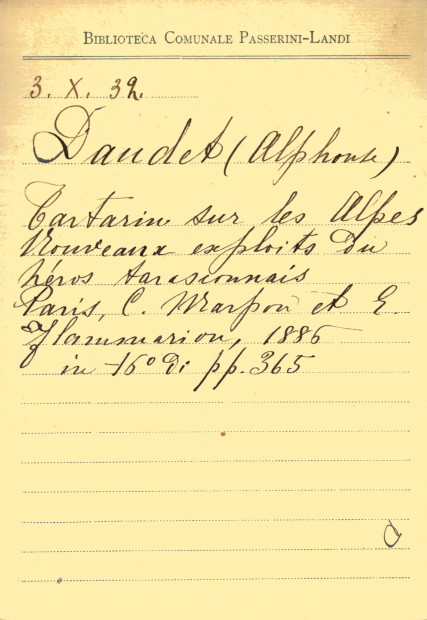 BIBLIOTECA COMUNALE PASSERINI-LANDI
3. X. 32.
Daudet (Alphonse)
Tartarin sur les Alpes
Nouveaux exploits du
héros tarasconnais
Paris, C. Marpon et E.
Flammarion, 1886
in-16° di pp. 365